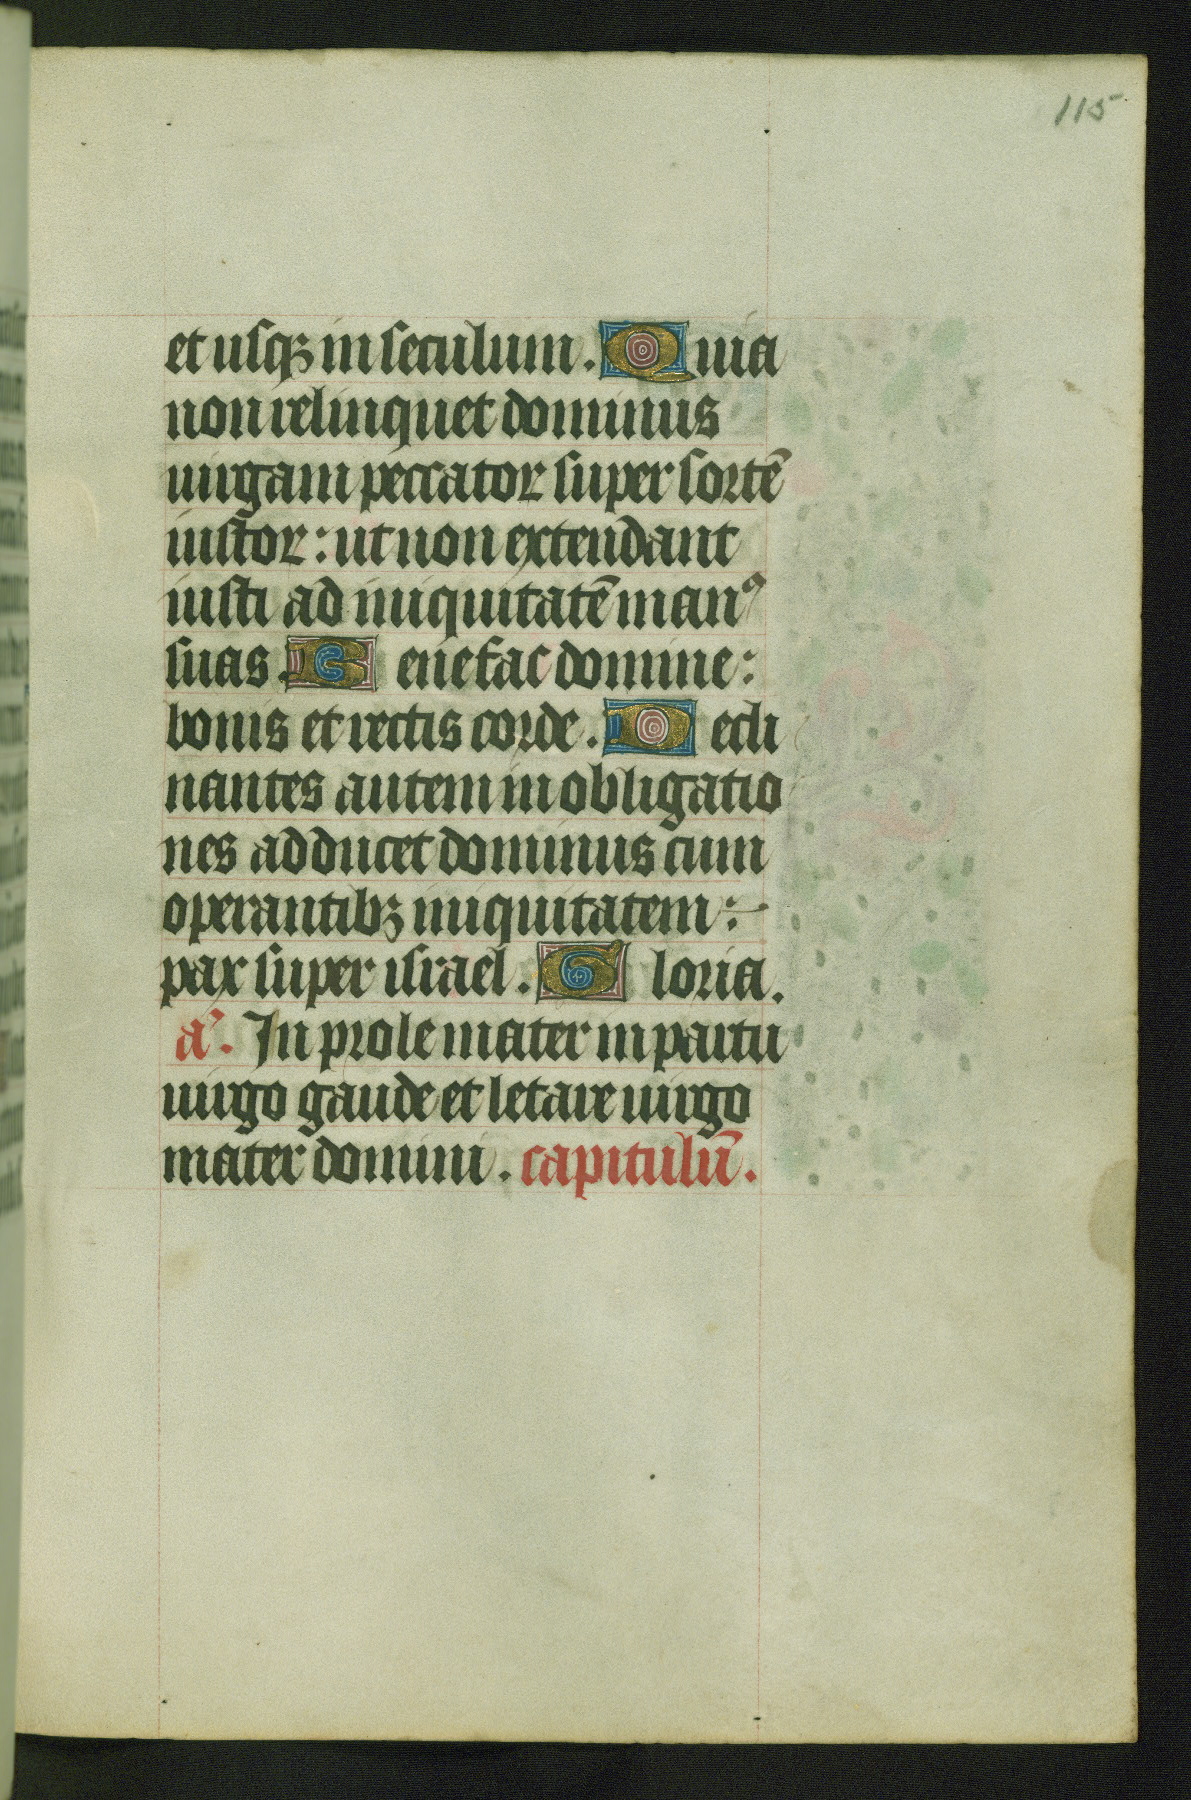 115
et usqꝫ in seculum. Quia
non relinquet dominus
uirgam peccatoꝝ super sortē
iustoꝝ: ut non extendant
iusti ad iniquitatē manꝰ
suas. Benefac domine:
bonis et rectis corde. Decli
nantes autem in obligatio
nes adducet dominus cum
operantibꝫ iniquitatem:
pax super israel. Gloria.
a'. In prole mater in partu
uirgo gaude et letare uirgo
mater domini. capitulū.